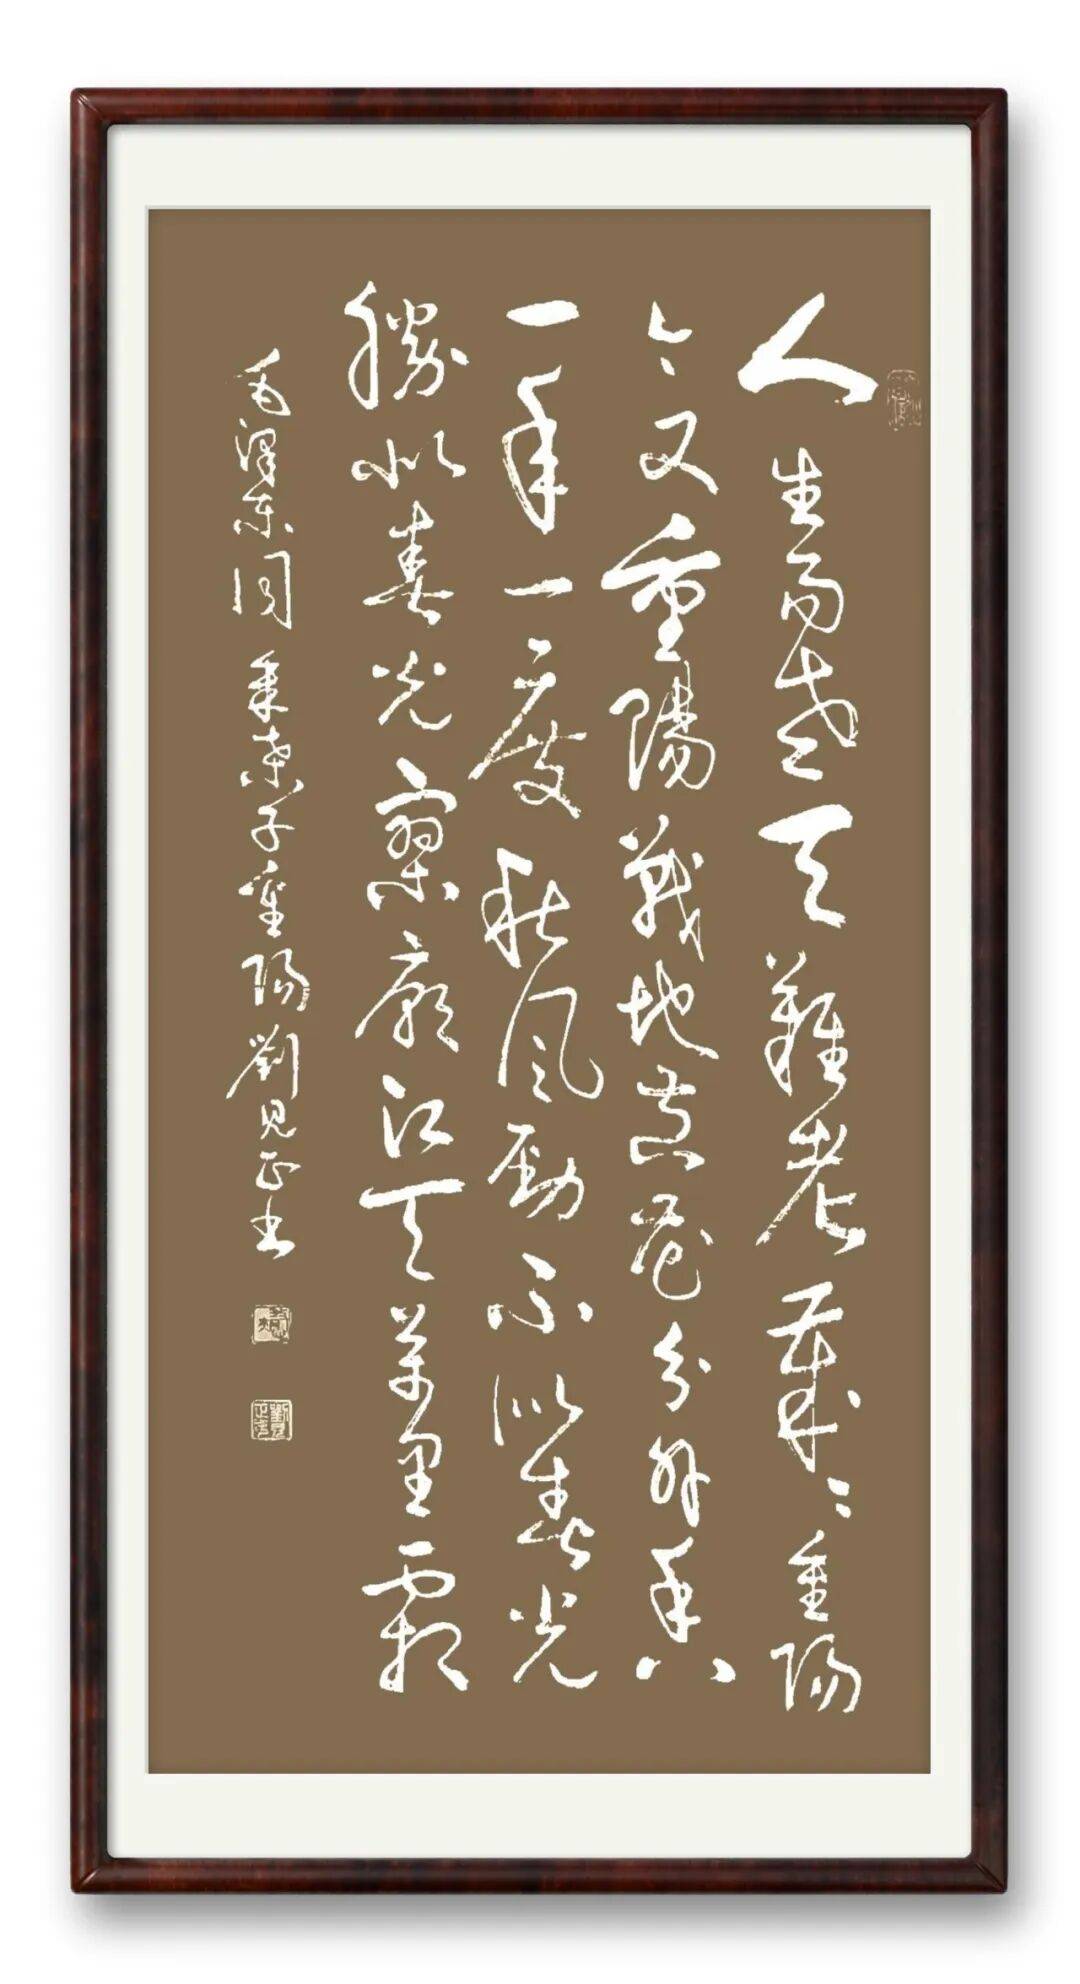 人生易老天難老歲々重陽
今又重陽戰地黃花分外香
一年一度秋風勁不似春光
勝似春光寥廓江天萬里霜
毛澤東詞采桑子重陽劉見正書